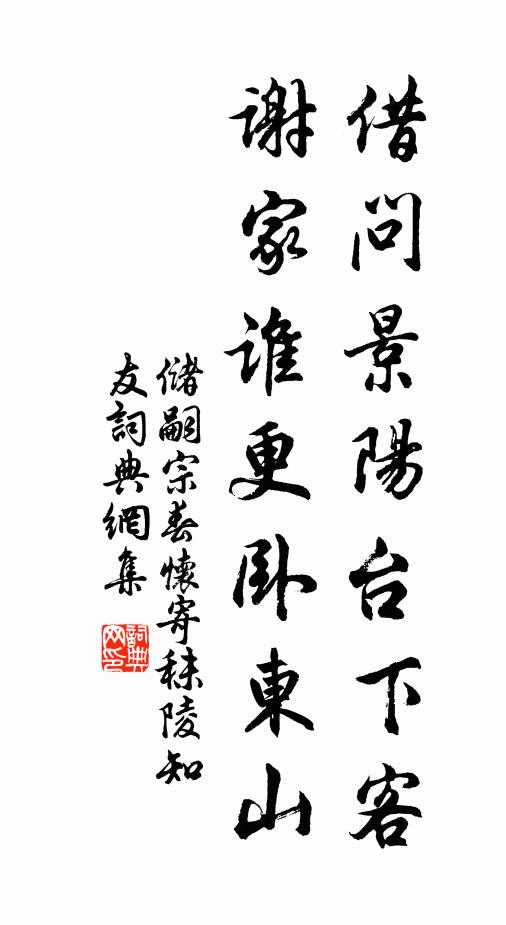 借問景陽台下客
謝家誰更卧東山
儲嗣宗春懷寄秣陵知
友詞典網集
詞典
网印